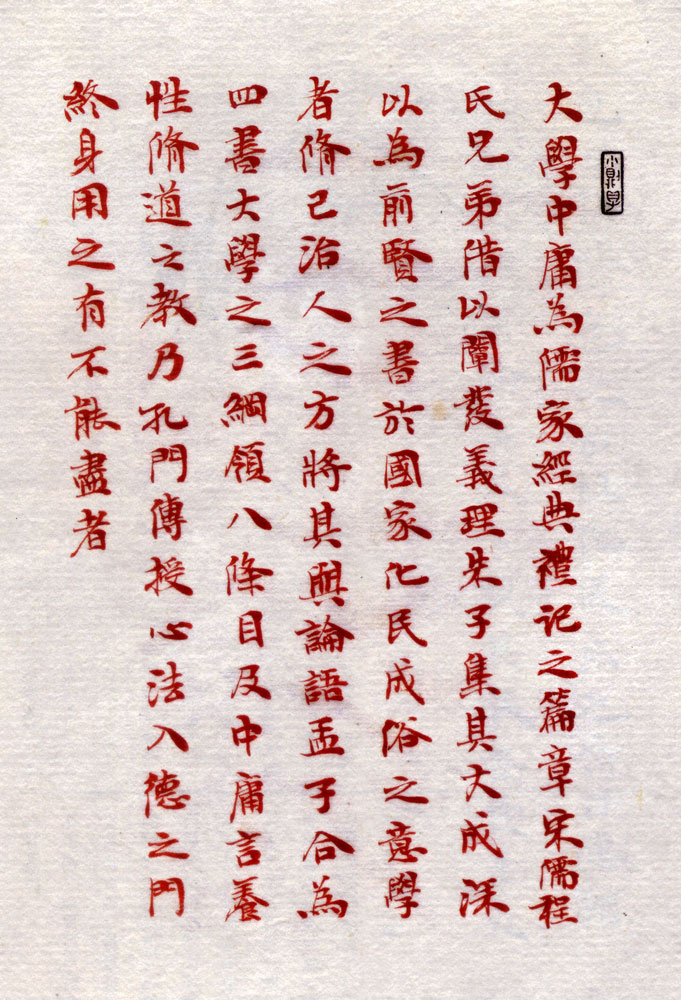 大學中庸為儒家經典禮記之篇章宋儒程
氏兄弟借以闡發義理朱子集其大成深
以為前賢之書於國家化民成俗之意學
者脩己治人之方將其與論語孟子合為
四書大學之三綱領八條目及中庸言養
性脩道之教乃孔門傳授心法入德之門
終身用之有不能盡者